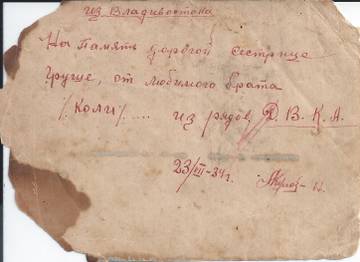 из Владивостока
На Память дорогой сестрице
Груше, от любимого брата
/. Коли /. .... из рядов, Д. В. К. А.
23/VII-34г.